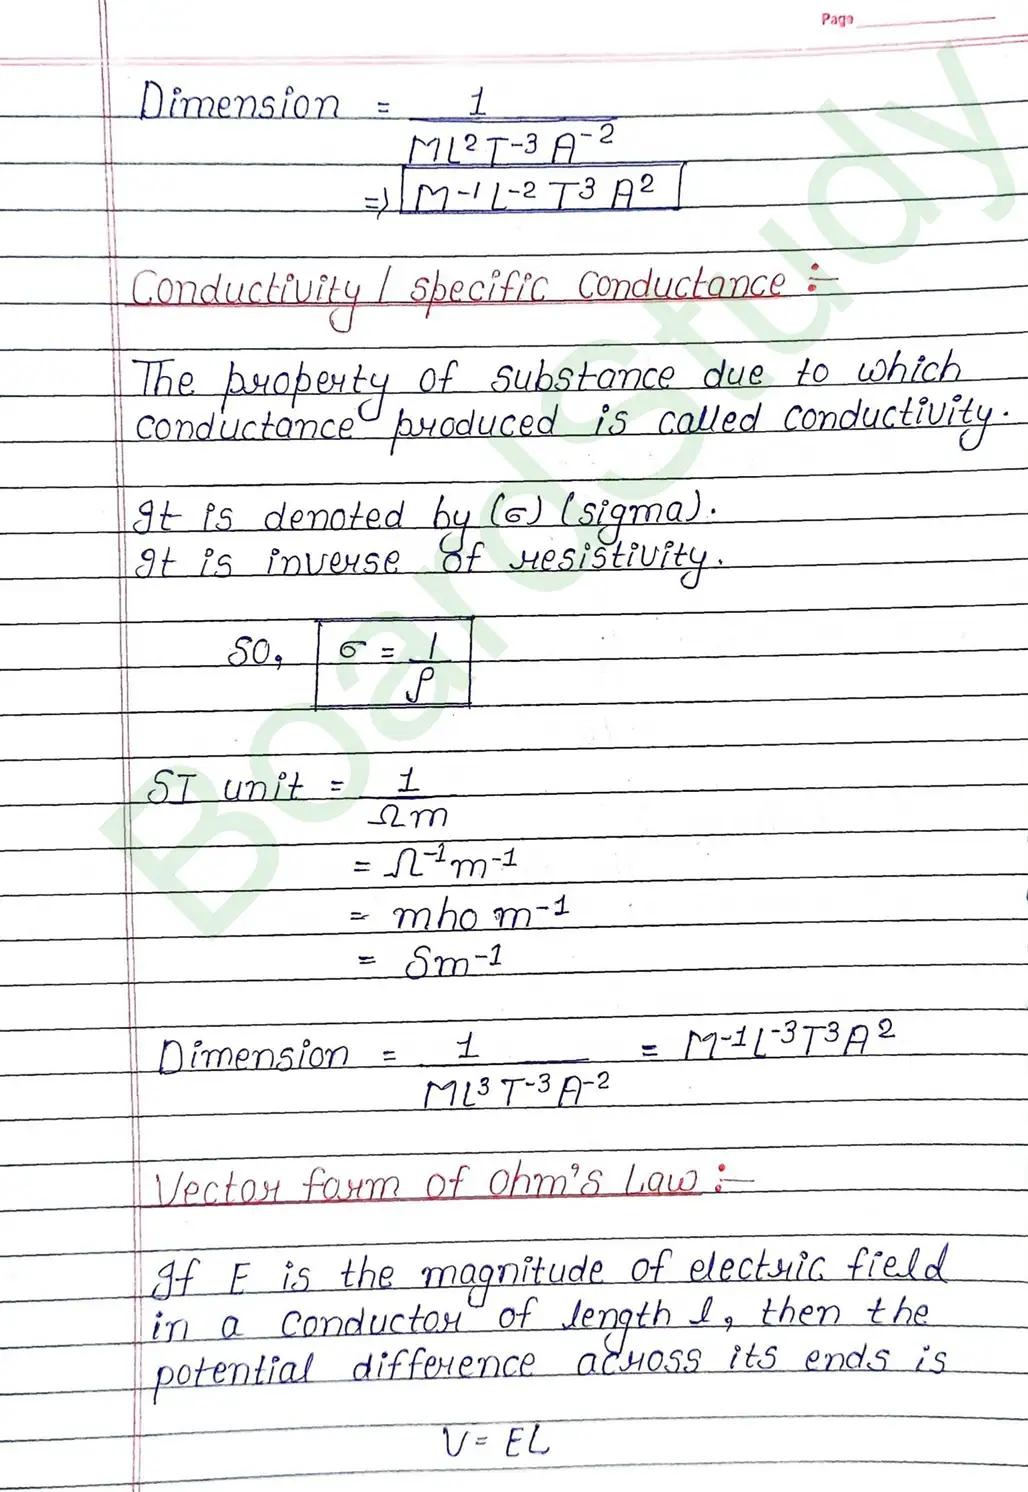 Page
Dimension = 1 / ML²T⁻³A⁻²
=> M⁻¹L⁻²T³A²
Conductivity / specific Conductance :-
The property of substance due to which
conductance produced is called conductivity.
It is denoted by (σ) (sigma).
It is inverse of resistivity.
SO, σ = 1/ρ
SI unit = 1 / Ωm
= Ω⁻¹m⁻¹
= mho m⁻¹
= Sm⁻¹
Dimension = 1 / ML³T⁻³A⁻² = M⁻¹L⁻³T³A²
Vector form of Ohm's Law :-
If E is the magnitude of electric field
in a conductor of length l, then the
potential difference across its ends is
V = EL
BoardStudy